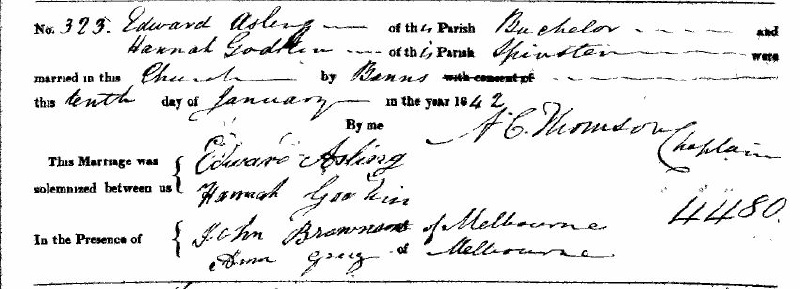 No. 323. Edward Asling of this Parish Bachelor and
Hannah Godkin of this Parish Spinster were
married in this Church by Banns with consent of
this tenth day of January in the year 1842
By me A C. Thomson Chaplain
This Marriage was solemnized between us { Edward Asling
Hannah Godkin
4480.
In the Presence of { John Brownson of Melbourne
Greig of Melbourne